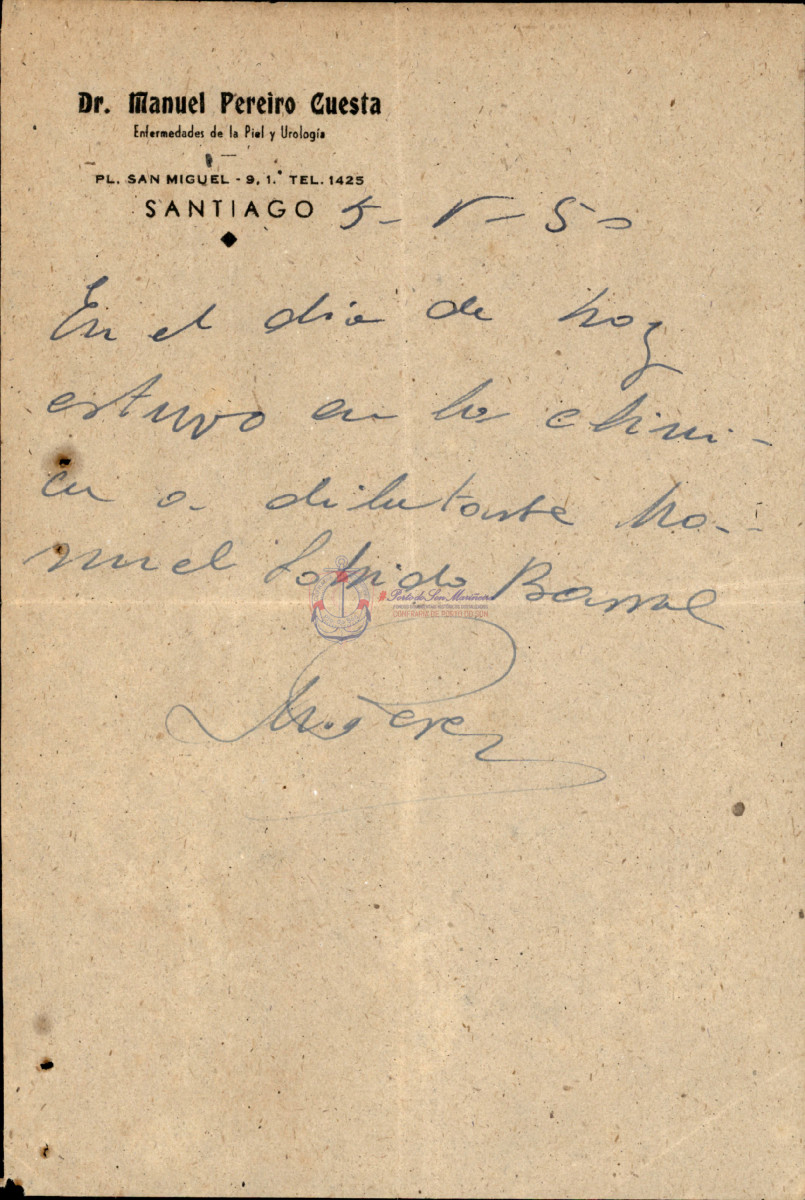 Dr. Manuel Pereiro Cuesta
Enfermedades de la Piel y Urología
PL. SAN MIGUEL - 9, 1.° TEL. 1425
SANTIAGO 5 - V - 50
En el dia de hoy
estuvo en la clini-
ca a dilatarse Ma-
nuel Barral
Porto do Son Mariñeiro
CONFRARÍA DE PORTO DO SON